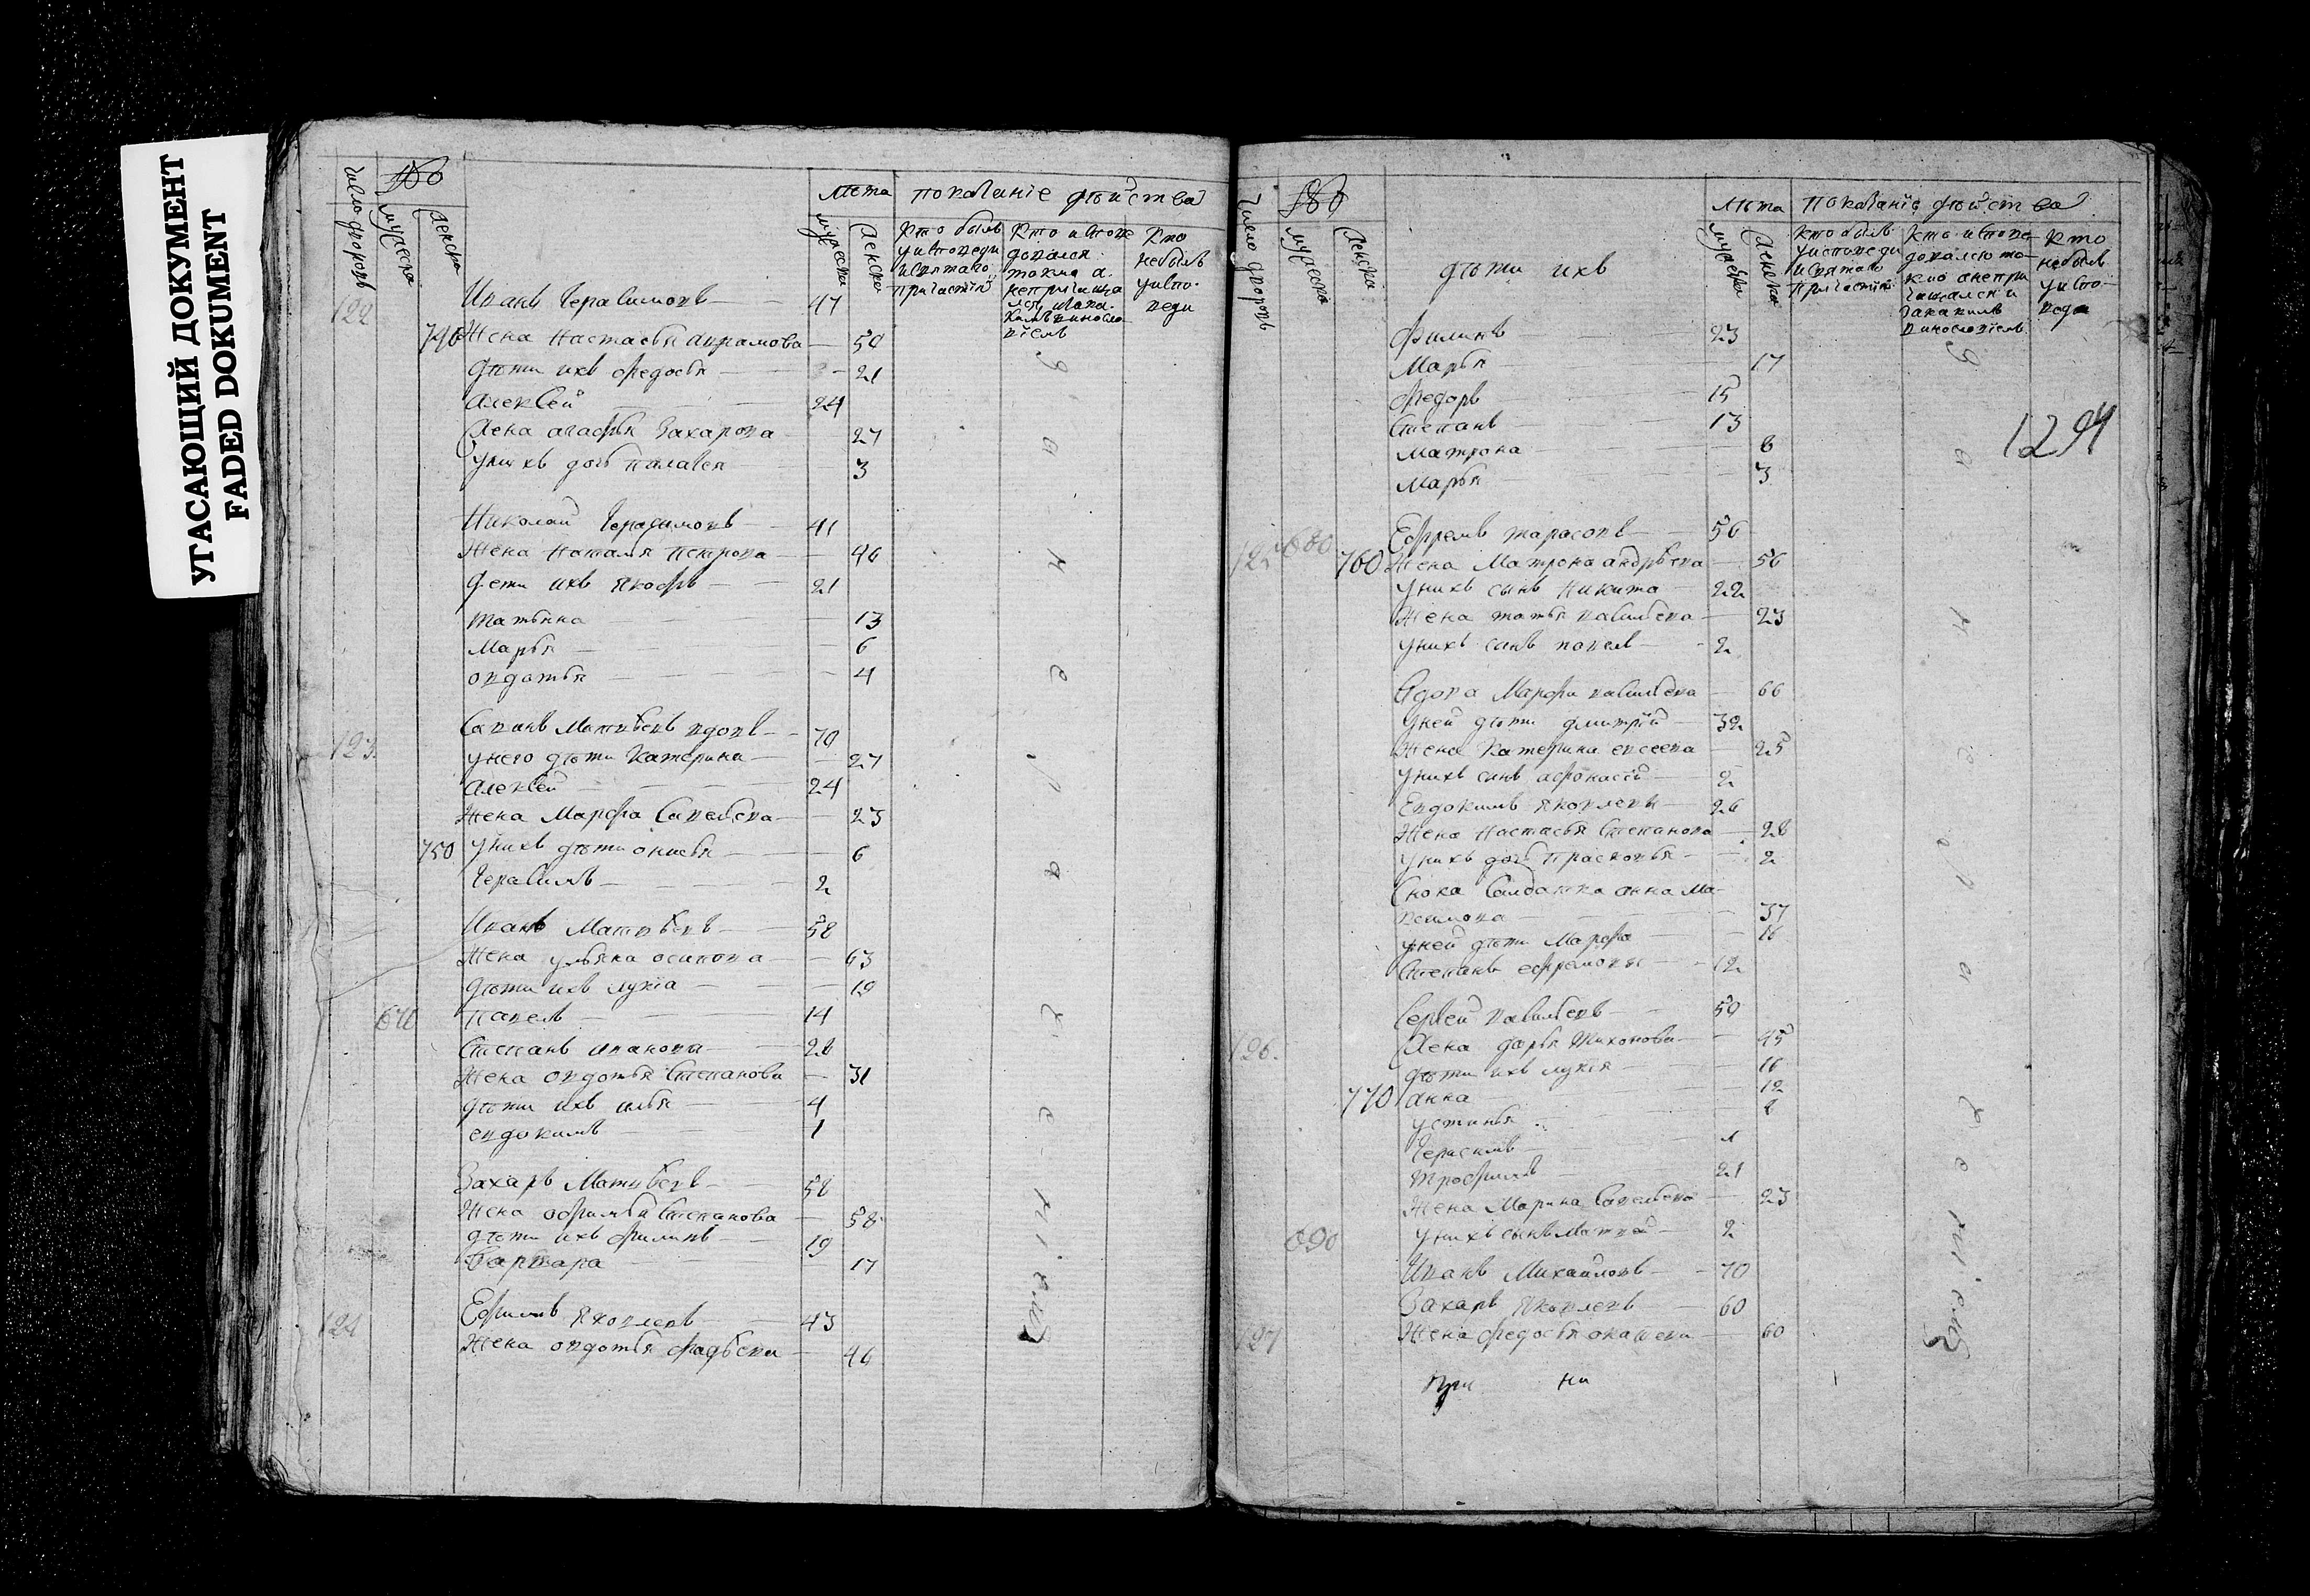 УГАСАЮЩИЙ ДОКУМЕНТ
FADED DOKUMENT
число дворовъ
мужеска
женска
лѣта
мужеска
женска
показание дѣйства
Кто былъ
у исповеди
и святаго
причастия
Кто испове
довался
токмо а
не причаща
лся, и за ка
кимъ виносло
виемъ
Кто
небылъ
у испо-
веди
122 Иванъ Герасимовъ 47
740 Жена Настасья Аврамова 50
дѣти ихъ Федосья 21
Алексей 24
Жена агафья Захарова 27
у нихъ дочь Пелагея 3
Николай Герасимовъ 41
Жена Наталья Петрова 46
дети ихъ Яковъ 21
татьяна 13
Марья 6
овдотья 4
123 Матвѣевъ вдовъ 70
у него дѣти Катерина 27
алексей 24
Жена Марфа Савельева 23
750 у нихъ дѣти 6
Герасимъ 2
Иванъ Матвѣевъ 58
Жена ульяна осипова 63
дѣти ихъ лукия 19
670 павелъ 14
Степанъ ивановъ 28
Жена овдотья Степанова 31
дѣти ихъ илья 4
евдокимъ 1
Захаръ Матвѣевъ 58
Жена офимья Степанова 58
дѣти ихъ филипъ 19
Варвара 17
124 Ефимъ Яковлевъ 43
Жена овдотья Фадѣева 46
число дворовъ
мужеска
женска
лѣта
мужеска
женска
показание дѣйства
кто былъ
у исповеди
и святаго
причастия
кто испове
довался то-
кмо а не при
чащался и
за какимъ
винословиемъ
Кто
небылъ
у испо-
веди
дѣти ихъ
1294
Филипъ 23
Марья 17
Федоръ 15
Степанъ 13
Матрона 8
Марья 3
125 680 Ефремъ тарасовъ 56
760 Жена Матрона андрѣева 56
у нихъ сынъ Никита 22
Жена татья василъева 23
у нихъ сынъ павелъ 2
вдова Марфа василъева 66
у ней дѣти дмитрий 32
Жена Катерина евсеева 25
у нихъ сынъ афонасей 2
Евдокимъ Яковлевъ 26
Жена Настасья Степанова 28
у нихъ дочь Прасковья 2
Сноха Салдатка анна Ма-
ксимова 37
у ней дѣти Марфа 16
Степанъ 12
Сергей василъевъ 50
126. Жена дарья тихонова 45
дѣти ихъ лукия 16
770 анна 12
устинья 8
Герасимъ 1
трофимъ 21
Жена Марина Савельева 23
690 у нихъ сынъ Матвей 2
Иванъ Михайловъ 70
Захаръ Яковлевъ 60
127 Жена федосья 60
при на